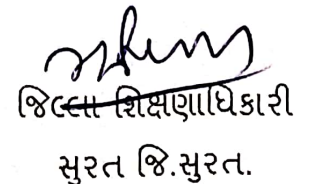 જિલ્લા શિક્ષણાધિકારી
સુરત જિ.સુરત.